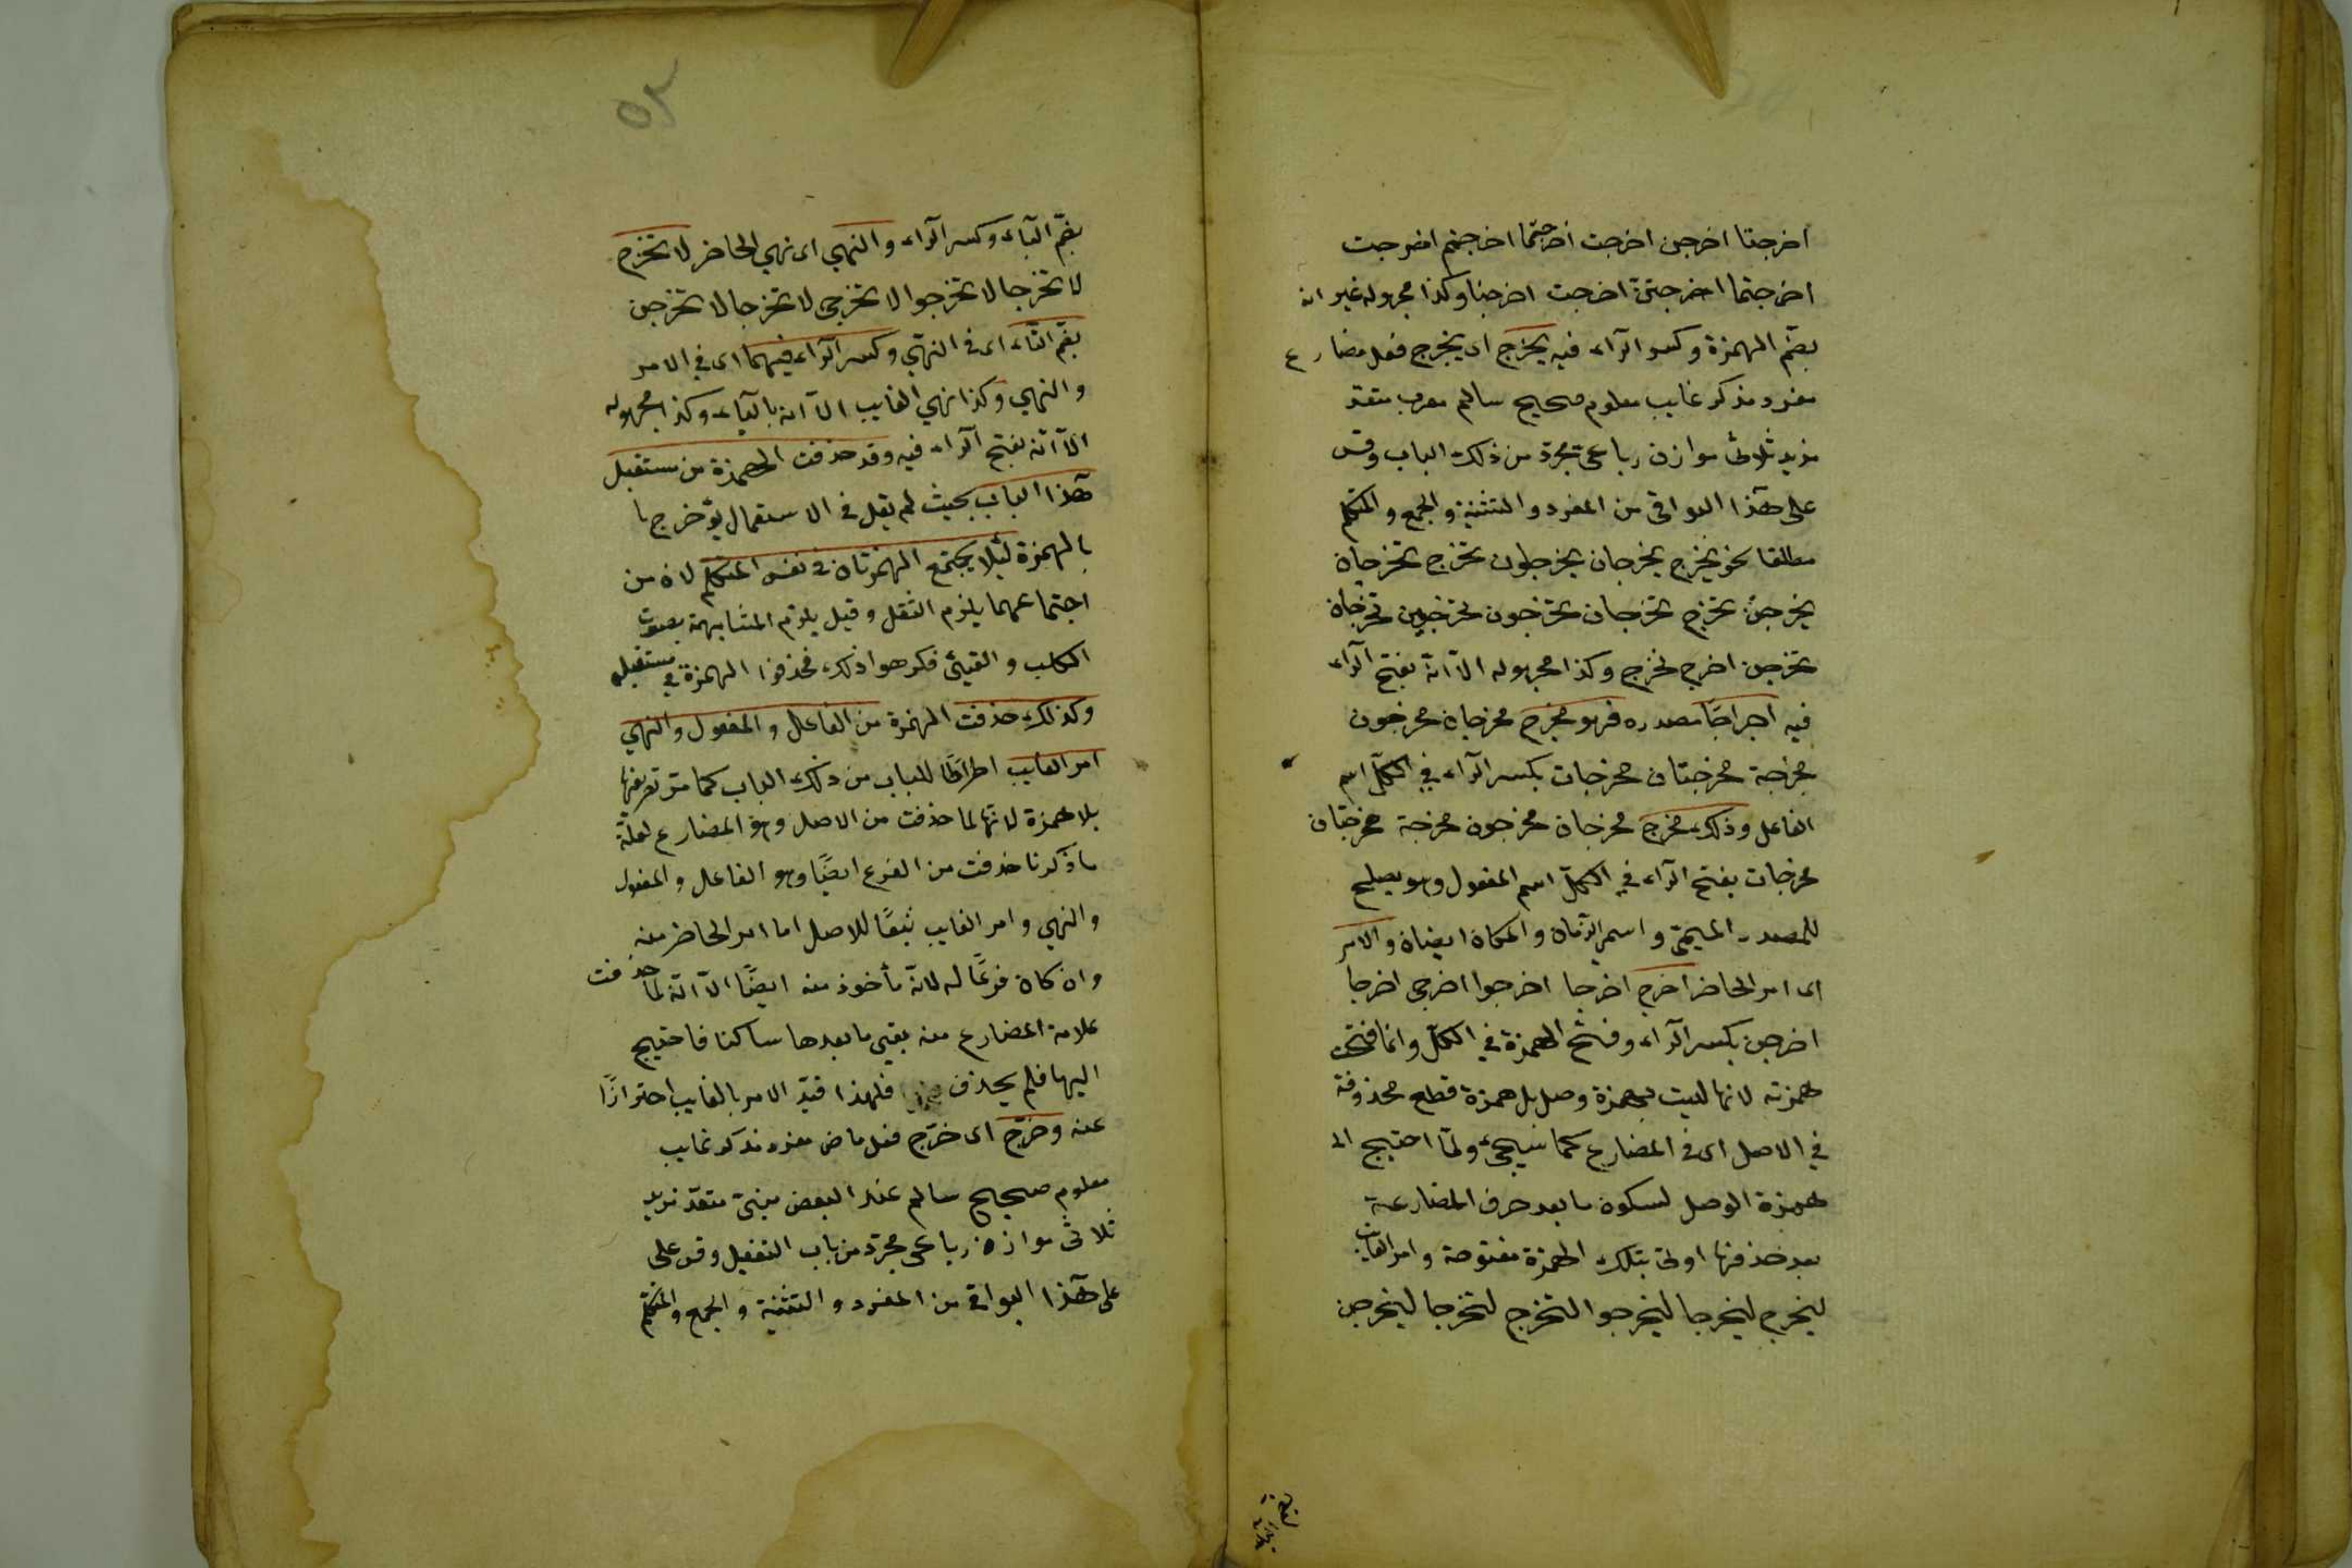 اخرجتا اخرجن اخرجت اخرجتما اخرجتم اخرجت
اخرجتما اخرجتنّ اخرجت اخرجنا وكذا مجهوله غير انه
بضمّ الهمزة وكسر الرآء فيه يخرج اى يخرج فعل مضارع
مفرد مذكر غايب معلوم صحيح سالم معرب متعدّ
مزيد ثلاثى موازن رباعى مجرّد من ذلك الباب وقس
على هذا البواقى من المفرد والتثنية والجمع والمتكلم
مطلقا نحو يخرج يخرجان يخرجون تخرج تخرجان
يخرجن تخرج تخرجان تخرجون تخرجين تخرجان
تخرجن اخرج نخرج وكذا مجهوله الاّ انّه بفتح الرآء
فيه اخراجًا مصدره فهو مخرج مخرجان مخرجون
مخرجة مخرجتان مخرجات بكسر الرآء في الكلّ اسم
الفاعل وذلك مخرج مخرجان مخرجون مخرجة مخرجتان
مخرجات بفتح الرآء في الكلّ اسم المفعول وهو يصلح
للمصدر الميمىّ واسم الزمان والمكان ايضا والامر
اى امر الحاضر اخرج اخرجا اخرجوا اخرجى اخرجا
اخرجن بكسر الرآء وفتح الهمزة في الكلّ وانما فتحت
همزته لانها ليست بهمزة وصل بل همزة قطع محذوفة
في الاصل اى فى المضارع كما سيجىء ولمّا احتيج الى
همزة الوصل لسكون ما بعد حرف المضارعة
بعد حذفها اوتى بتلك الهمزة مفتوحة وامر الغايب
ليخرج ليخرجا ليخرجوا لتخرج لتخرجا ليخرجن
٥٢
بضمّ اليآء وكسر الرآء والنهي اى نهي الحاضر لا تخرج
لا تخرجا لا تخرجوا لا تخرجى لا تخرجا لا تخرجن
بضمّ التّاء اى فى النهي وكسر الرآء فيهما اى في الامر
والنهي وكذا نهي الغايب الاّ انه باليآء وكذا مجهوله
الاّ انّه بفتح الرآء فيه وقد حذفت الهمزة من مستقبل
هذا الباب بحيث لم يقل فى الاستعمال يؤخرج
بالهمزة لئلا يجتمع الهمزتان فى نفس المتكلم لان من
اجتماعهما يلزم الثقل وقيل يلزم المشابهة بصوت
الكلب والقيئ فكرهوا ذلك فحذفوا الهمزة في مستقبله
وكذلك حذفت الهمزة من الفاعل والمفعول والنهي
امر الغايب اطرادًا للباب من ذلك الباب كما مرّ تعريفها
بلا همزة لانها لما حذفت من الاصل وهو المضارع لعلّة
ما ذكرنا حذفت من الفرع ايضًا وهو الفاعل والمفعول
والنهي وامر الغايب تبعًا للاصل اما امر الحاضر منه
وان كان فرعًا له لانّه مأخوذ منه ايضًا الاّ انّه لما حذفت
علامة المضارع منه بقي ما بعدها ساكنا فاحتيج
اليها فلم يحذف فلهذا قيّد الامر بالغايب احترازًا
عنه وخرّج اى خرّج فعل ماض مفرد مذكر غايب
معلوم صحيح سالم عند البعض مبنىّ متعدّ مزيد
ثلاثى موازن رباعى مجرّد من باب التفعيل وقس على
على هذا البواقى من المفرد والتثنية والجمع والمتكلّم